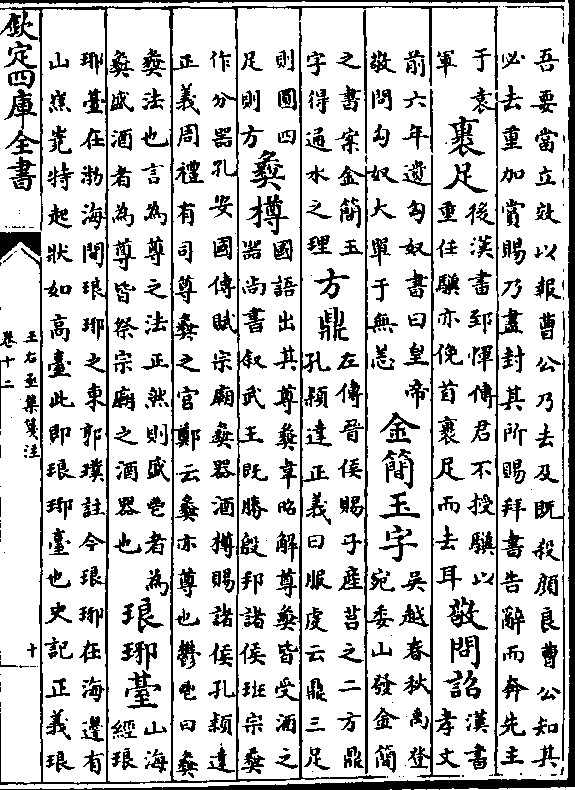 吾要當立效以報曹公乃去及既殺顔良曹公知其
必去重加賞賜乃盡封其所賜拜書告辭而奔先主
于袁
軍
裹足
後漢書郅惲傳君不授驥以
重任驥亦俛首裹足而去耳
敬問詔
漢書
孝文
前六年遺匈奴書曰皇帝
敬問匈奴大單于無恙
金簡玉字
吳越春秋禹登
宛委山發金簡
之書案金簡玉
字得通水之理
方鼎
左傳晉侯賜子產莒之二方鼎
孔穎達正義曰服虔云鼎三足
則圓四
足則方
彝樽
國語出其尊彝韋昭解尊彝皆受酒之
器尚書叙武王既勝殷邦諸侯班宗彝
作分器孔安國傳賦宗廟彝器酒樽賜諸侯孔穎達
正義周禮有司尊彝之官鄭云彝亦尊也鬱鬯曰彝
彝法也言為尊之法正然則盛鬯者為
彝盛酒者為尊皆祭宗廟之酒器也
琅琊臺
山海
經琅
琊臺在渤海間琅琊之東郭璞註今琅琊在海邊有
山嶕嶤特起狀如高臺此即琅琊臺也史記正義琅
欽定四庫全書
王右丞集箋注
卷十二
十